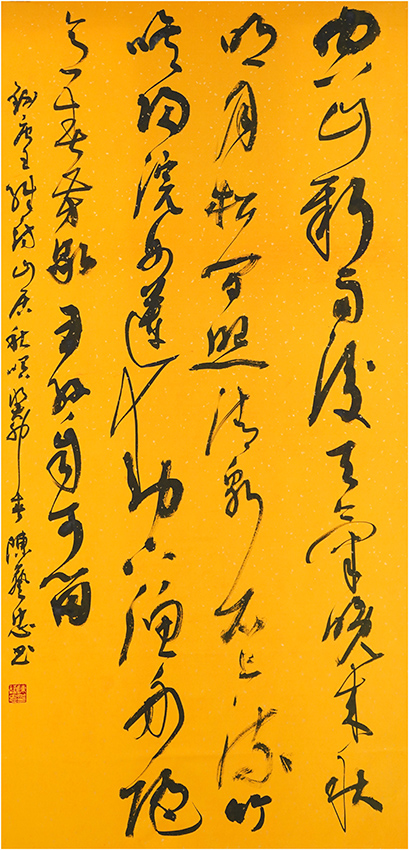 空山新雨後天氣晚來秋
明月松間照清泉石上流竹
喧歸浣女蓮動下漁舟隨
意春芳歇王孫自可留
錄唐王維詩山居秋暝癸卯春陳藝忠書